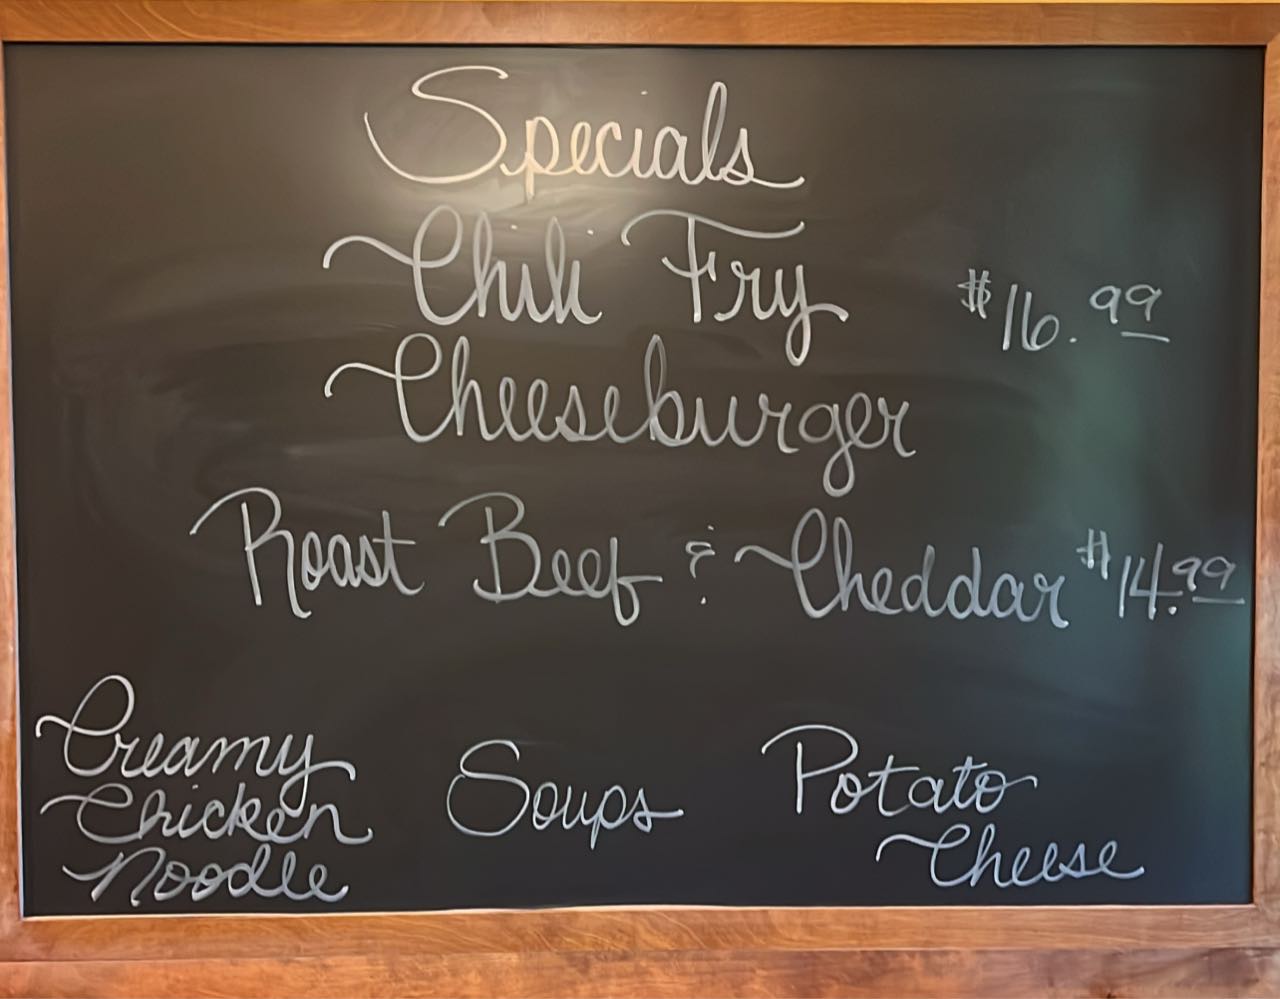 Specials
Chili Fry $16.99
Cheeseburger
Roast Beef & Cheddar $14.99
Creamy
Chicken
Noodle
Soups
Potato
Cheese